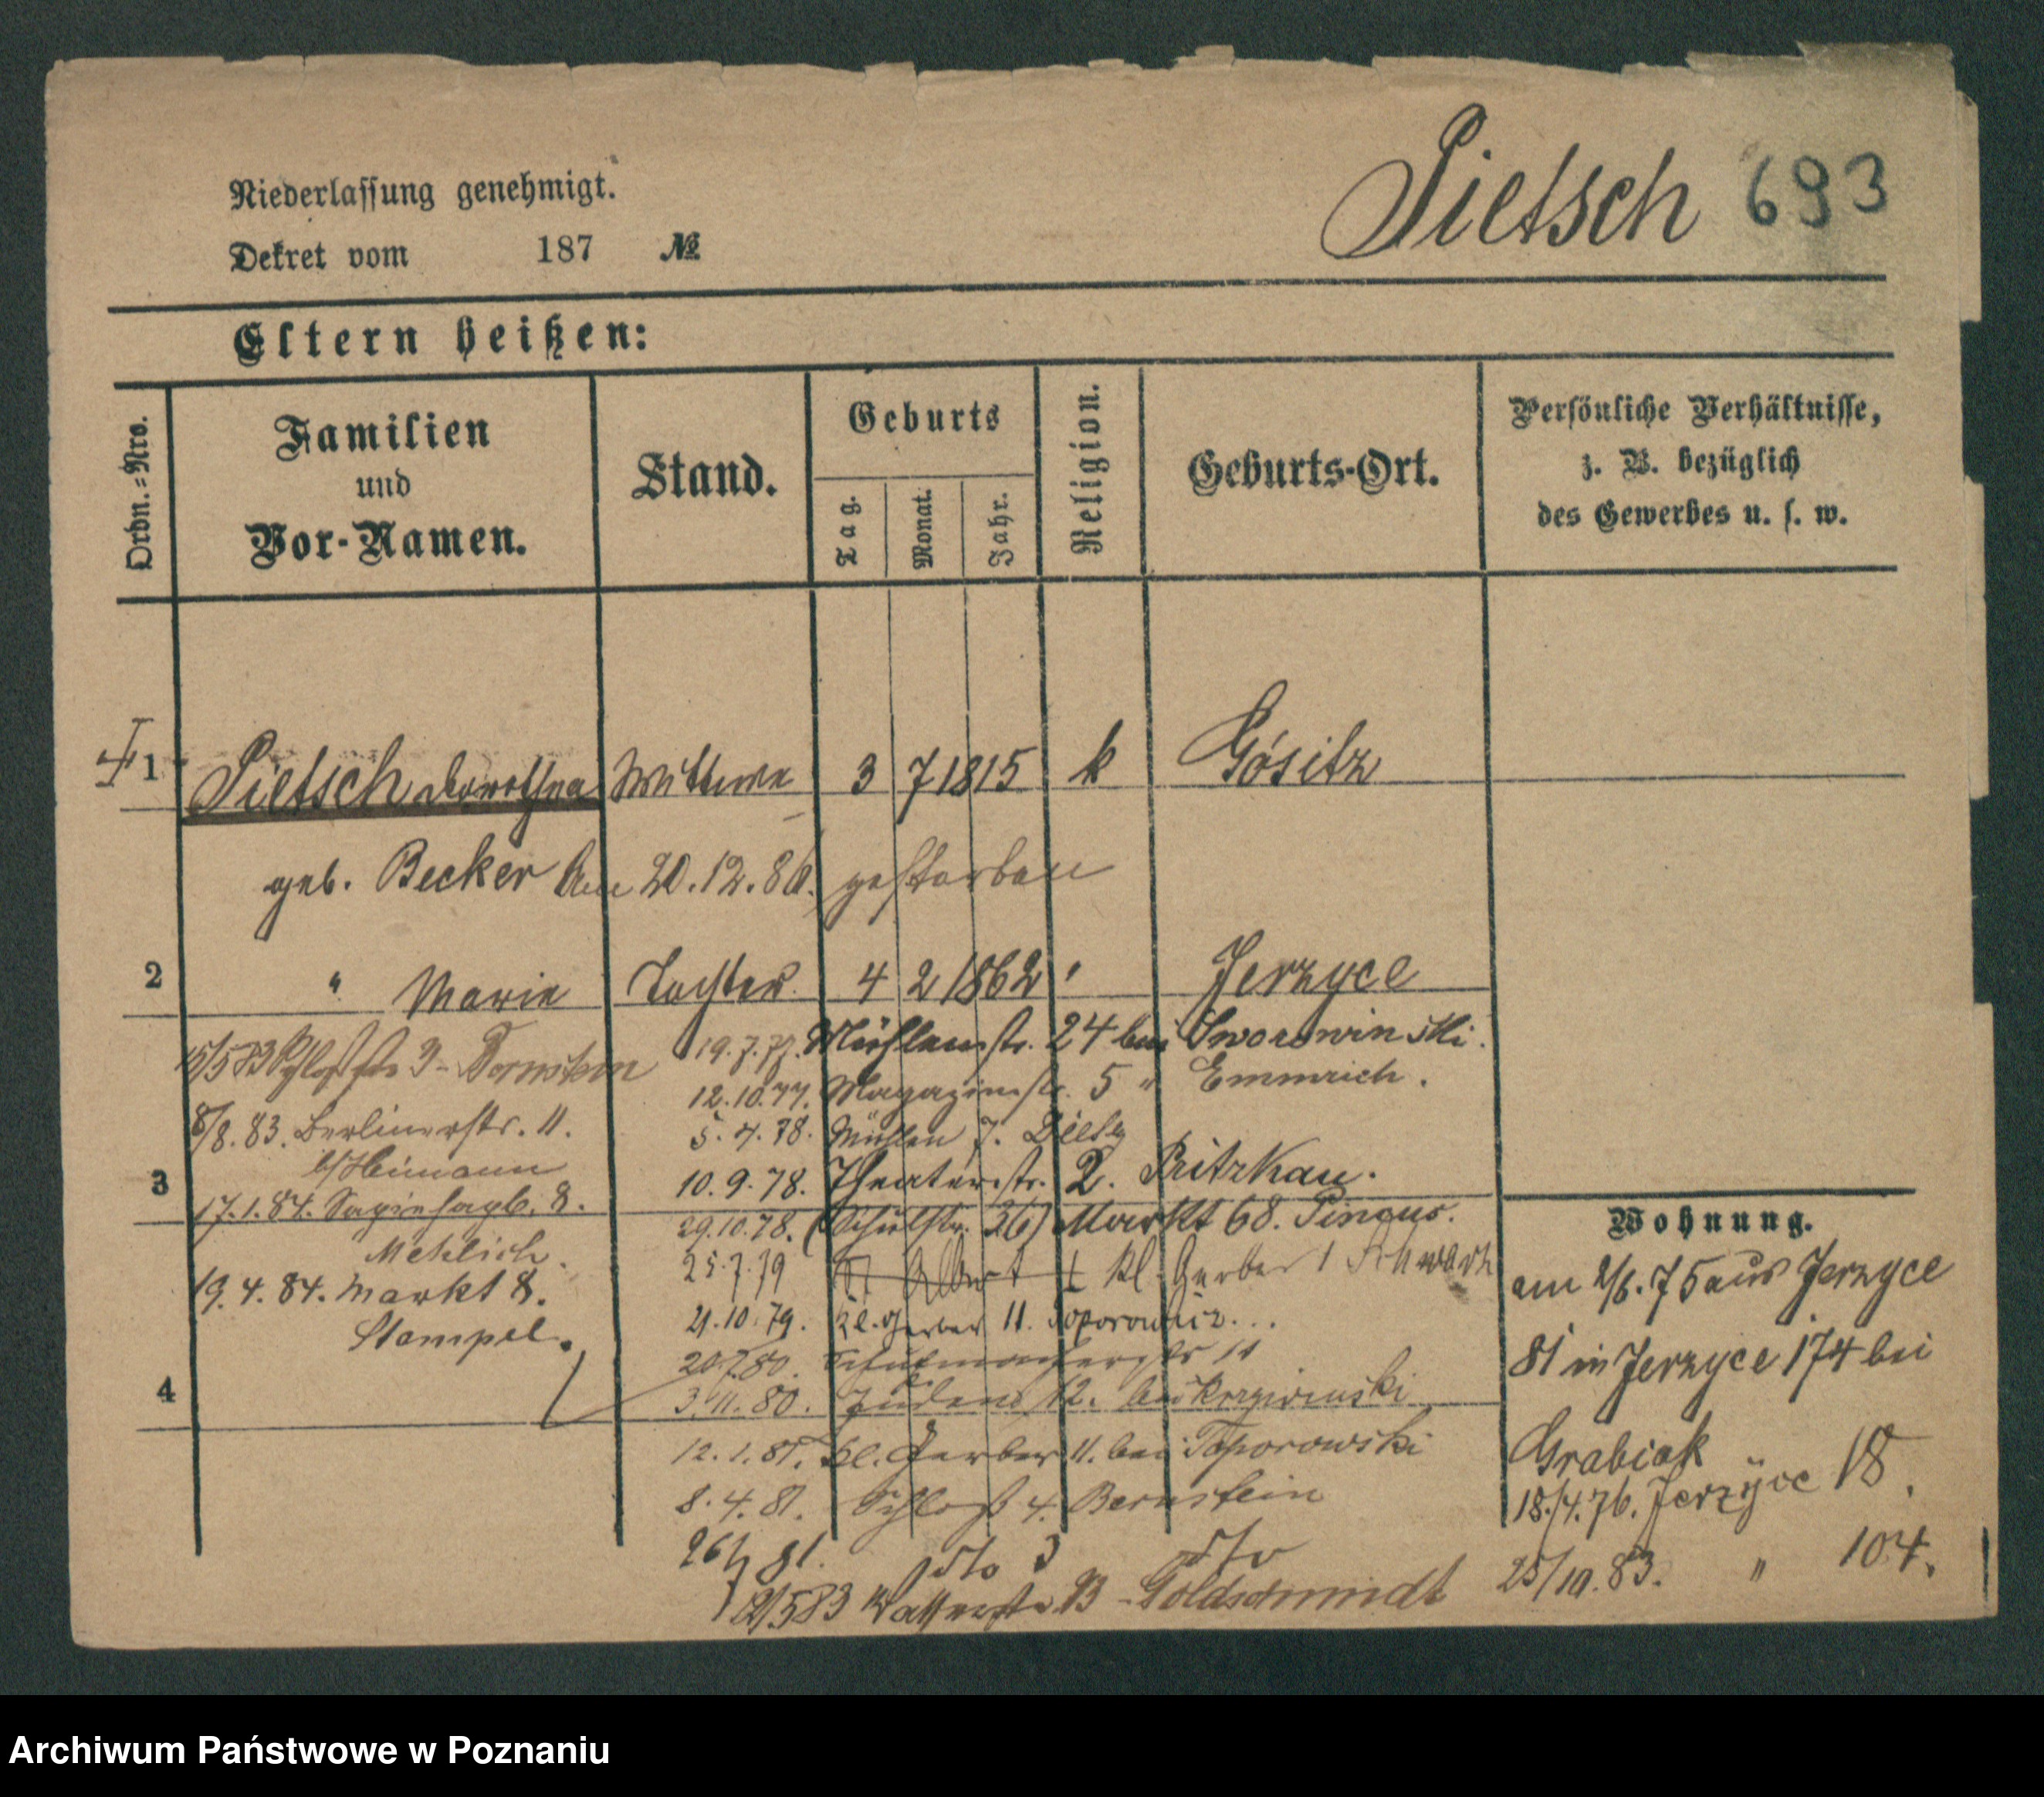 Pietsch 693
Niederlassung genehmigt.
Dekret vom 187 №
Eltern heißen:
Ordn.=Nro.
Familien
und
Vor-Namen.
Stand.
Geburts
Tag.
Monat.
Jahr.
Religion.
Geburts-Ort.
Persönliche Verhältnisse,
z. B. bezüglich
des Gewerbes u. s. w.
1 Pietsch Dorothea Wittwe 3 7 1815 k Gósitz
geb. Becker Am 20.12.86. gestorben
2 " Marie Tochter 4 2 1862 " Jerzyce
15/5 83
8/8. 83. Berlinerstr. 11.
b/Heimann
3
17.1.84. 8.
Mehlich.
19.4.84. Markt 8.
Stempel.
4
19.7.77. Mühlenstr. 24 bei Sworowinski.
12.10.77. Magazinstr. 5 " Emmrich.
5.4.78. Mühlen 7. Dietz
10.9.78. Theaterstr. 2. Pritzkau.
29.10.78. (Schulstr. 36) Markt 68. Pincus.
25.7.79 kl. Gerber
21.10.79. Kl. Gerber 11. Toporowicz...
20.7.80. 11
3.11.80. Juden 12. bei
12.1.81. Kl. Gerber 11. bei Toporowski
8.4.81. Schloß 4. Bernstein
81. dto 3 dto
83 13 - Goldschmidt
Wohnung.
am 2/6.75 aus Jerzyce
81 in Jerzyce 174 bei
Grabiak
18./4.76. Jerzyce 18.
25/10.83. " 104.
Archiwum Państwowe w Poznaniu